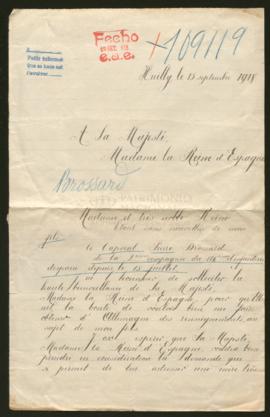 Fecho
e.a.e.
+109119
Huilly, le 15 septembre 1918
A Sa Majesté,
Madame la Reine d'Espagne
Brossard
Madame et très noble Reine
Etant sans nouvelles de mon
fils
le Caporal Brossard
de la compagnie du
disparu depuis le 15 juillet
j'ai l'honneur de solliciter la
haute bienveillance de Sa Majesté,
Madame la Reine d'Espagne, pour qu'Elle
ait la bonté de vouloir bien me faire
obtenir d'Allemagne des renseignements au
sujet de mon fils.
J'ose espérer que Sa Majesté,
Madame la Reine d'Espagne, voudra bien
prendre en considération la demande que
se permet de lui adresser une mère très